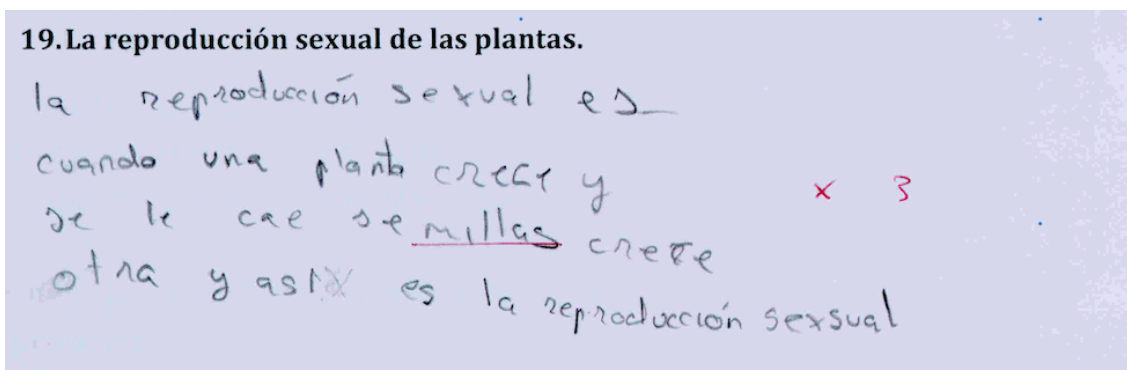 19. La reproducción sexual de las plantas.
la reproducción sexual es
cuando una planta crece y
x 3
se le cae semillas crece
otra y asi es la reproducción sexsual